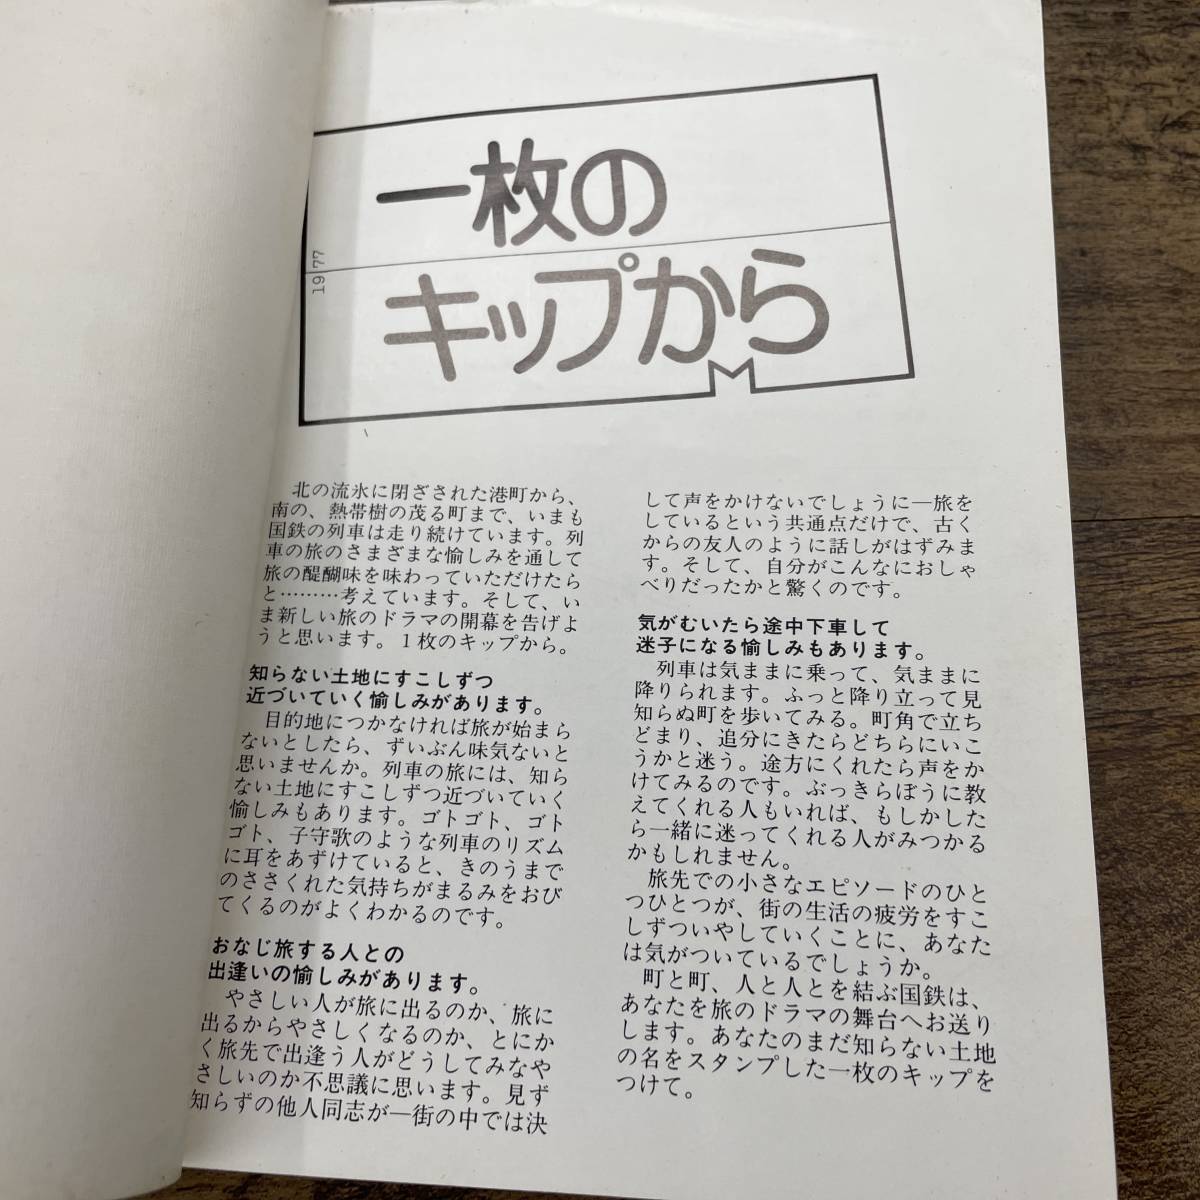 一枚の
キップから
1977
北の流氷に閉ざされた港町から、
南の、熱帯樹の茂る町まで、いまも
国鉄の列車は走り続けています。列
車の旅のさまざまな愉しみを通して
旅の醍醐味を味わっていただけたら
と………考えています。そして、い
ま新しい旅のドラマの開幕を告げよ
うと思います。１枚のキップから。
知らない土地にすこしずつ
近づいていく愉しみがあります。
目的地につかなければ旅が始まら
ないとしたら、ずいぶん味気ないと
思いませんか。列車の旅には、知ら
ない土地にすこしずつ近づいていく
愉しみもあります。ゴトゴト、ゴト
ゴト、子守歌のような列車のリズム
に耳をあずけていると、きのうまで
のささくれた気持ちがまるみをおび
てくるのがよくわかるのです。
おなじ旅する人との
出逢いの愉しみがあります。
やさしい人が旅に出るのか、旅に
出るからやさしくなるのか、とにか
く旅先で出逢う人がどうしてみなや
さしいのか不思議に思います。見ず
知らずの他人同志が―街の中では決
して声をかけないでしょうに―旅を
しているという共通点だけで、古く
からの友人のように話しがはずみま
す。そして、自分がこんなにおしゃ
べりだったかと驚くのです。
気がむいたら途中下車して
迷子になる愉しみもあります。
列車は気ままに乗って、気ままに
降りられます。ふっと降り立って見
知らぬ町を歩いてみる。町角で立ち
どまり、追分にきたらどちらにいこ
うかと迷う。途方にくれたら声をか
けてみるのです。ぶっきらぼうに教
えてくれる人もいれば、もしかした
ら一緒に迷ってくれる人がみつかる
かもしれません。
旅先での小さなエピソードのひと
つひとつが、街の生活の疲労をすこ
しずついやしていくことに、あなた
は気がついているでしょうか。
町と町、人と人とを結ぶ国鉄は、
あなたを旅のドラマの舞台へお送り
します。あなたのまだ知らない土地
の名をスタンプした一枚のキップを
つけて。